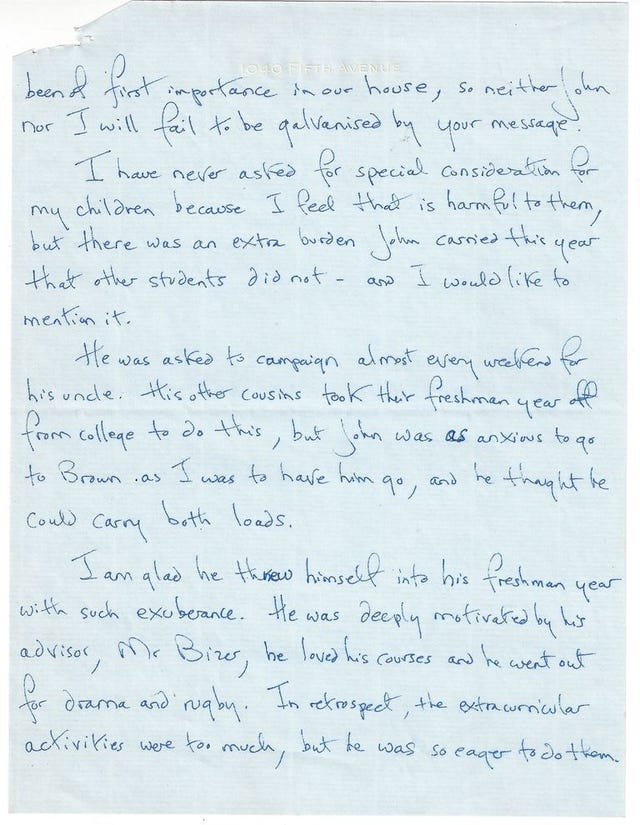 1040 FIFTH AVENUE
been of first importance in our house, so neither John
nor I will fail to be galvanised by your message.
I have never asked for special consideration for
my children because I feel that is harmful to them,
but there was an extra burden John carried this year
that other students did not - and I would like to
mention it.
He was asked to campaign almost every weekend for
his uncle. His other cousins took their freshman year off
from college to do this, but John was as anxious to go
to Brown as I was to have him go, and he thought he
could carry both loads.
I am glad he threw himself into his freshman year
with such exuberance. He was deeply motivated by his
advisor, Mr Bizer, he loved his courses and he went out
for drama and rugby. In retrospect, the extracurricular
activities were too much, but he was so eager to do them.